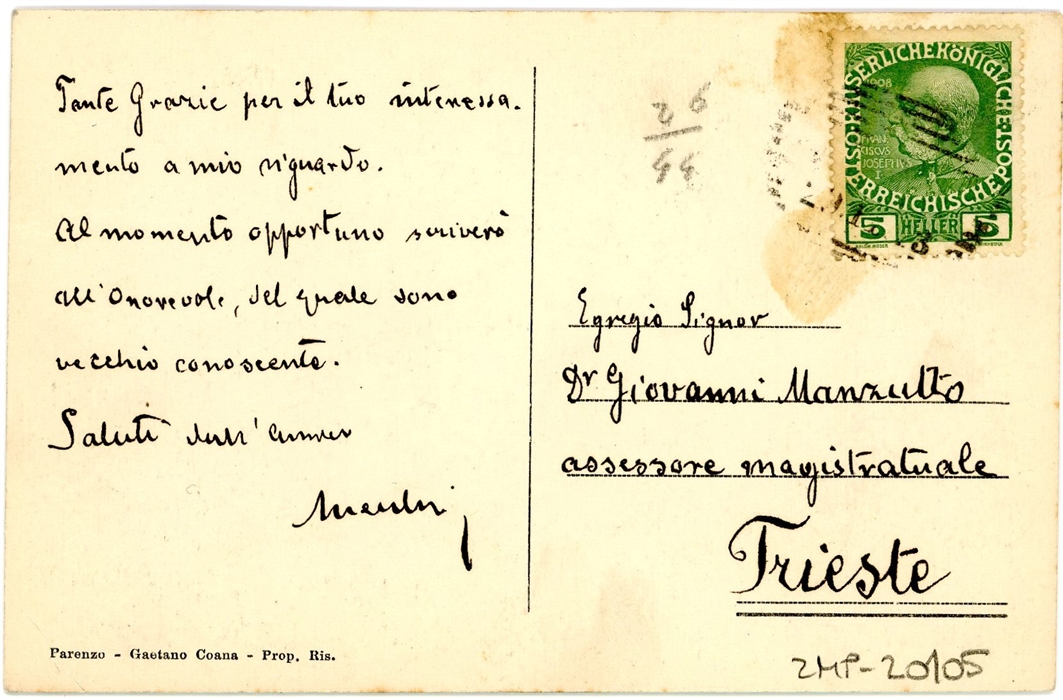 Tante Grazie per il tuo interessa-
mento a mio riguardo.
Al momento opportuno scriverò
all'Onorevole, del quale sono
vecchio conoscente.
Saluti dall'
Parenzo - Gaetano Coana - Prop. Ris.
26
44
KAISERLICHE KÖNIGLICHE ÖSTERREICHISCHE POST
1908
FRAN
CISCUS
IOSEPHVS
I.
5 HELLER 5
Egregio Signor
Dr Giovanni Manzutto
assessore magistratuale
Trieste
ZMP-20/05